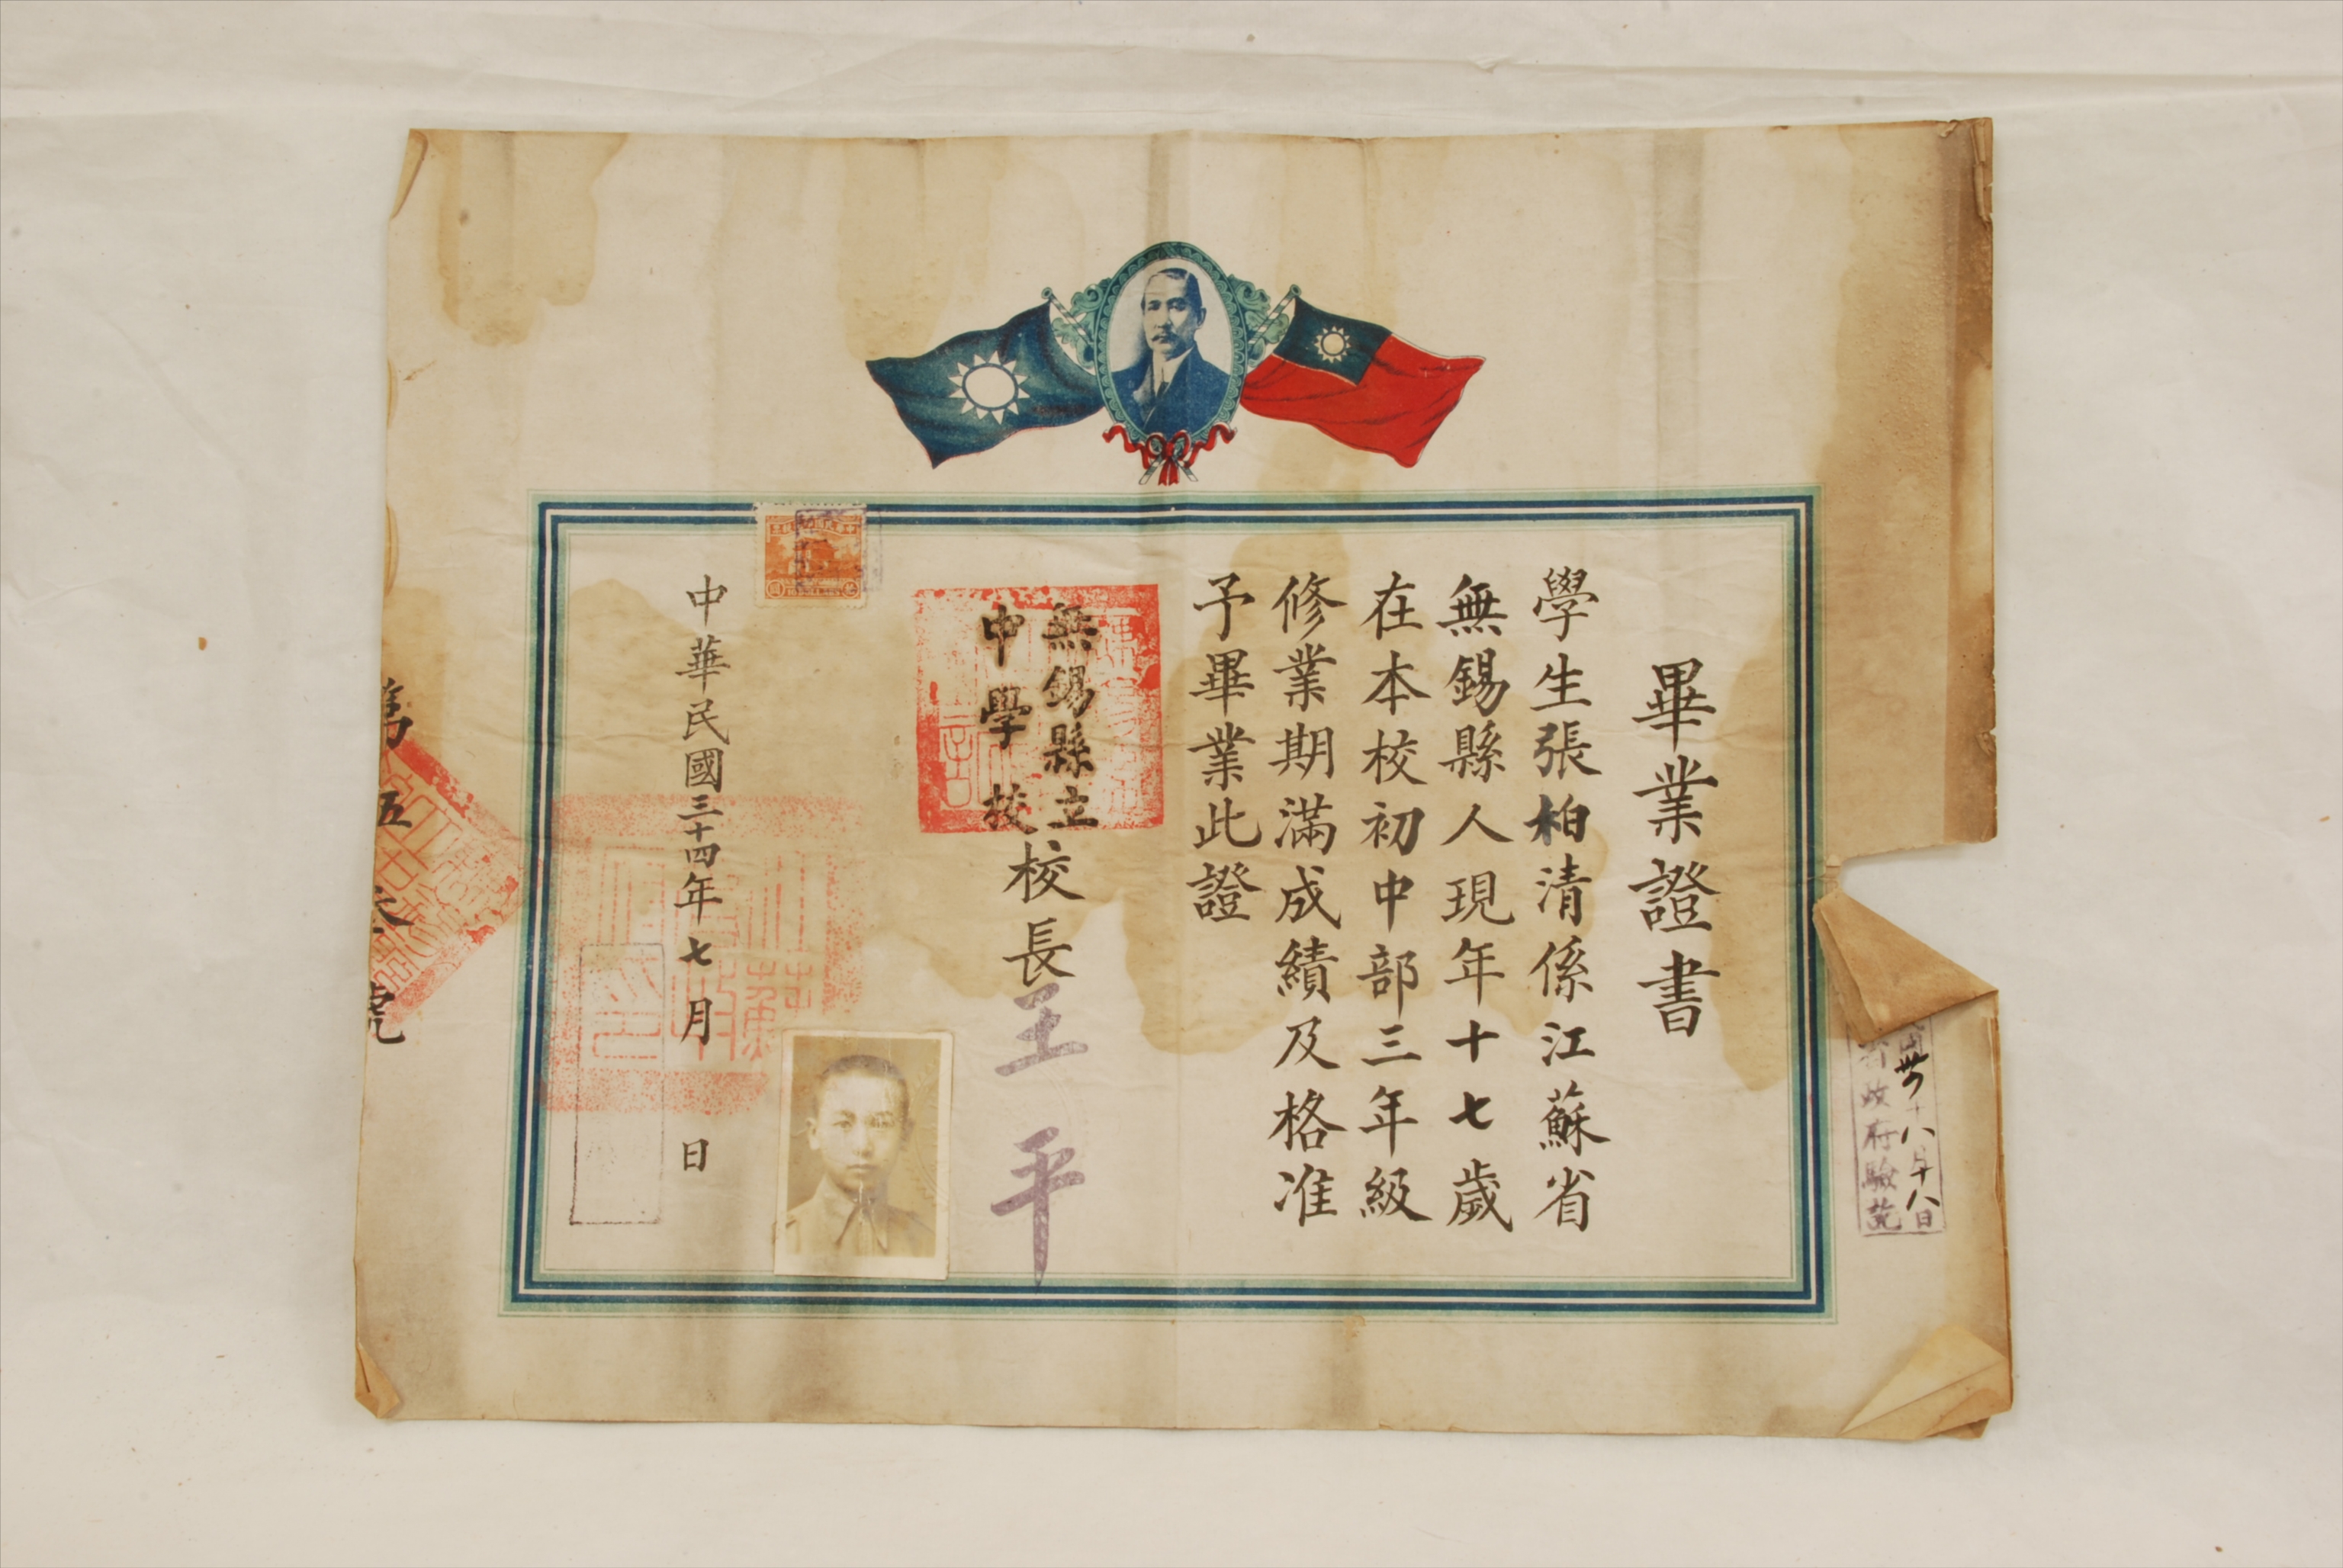 畢業證書
學生張柏清係江蘇省
無錫縣人現年十七歲
在本校初中部三年級
修業期滿成績及格准
予畢業此證
無錫縣立
中學校
校長王平
中華民國三十四年七月 日
第五 號
八月十八日
省政府驗訖